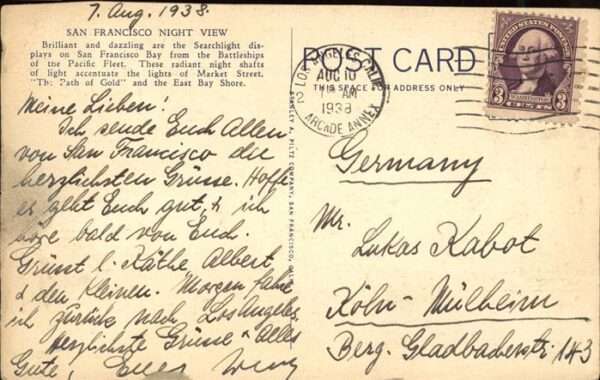 7. Aug. 1938.
SAN FRANCISCO NIGHT VIEW
Brilliant and dazzling are the Searchlight dis-
plays on San Francisco Bay from the Battleships
of the Pacific Fleet. These radiant night shafts
of light accentuate the lights of Market Street.
"The Path of Gold" and the East Bay Shore.
Meine Lieben!
Ich sende Euch Allen
von San Francisco die
herzlichsten Grüsse. Hoffe
es geht Euch gut, & ich
höre bald von Euch.
Grüsst l. Käthe Albert
& den Kleinen. Morgen fahre
ich zurück nach Los Angeles
Herzlichste Grüsse & Alles
Gute! Euer
STANLEY A. PILTZ COMPANY, SAN FRANCISCO, CAL.
POST CARD
THIS SPACE FOR ADDRESS ONLY
LOS ANGELES, CALIF.
2
AUG 10
AM
1938
ARCADE ANNEX
UNITED STATES POSTAGE
WASHINGTON
3 CENTS 3
Germany
Mr.
Lukas Kabot
Köln-Mülheim
Berg. Gladbacherstr. 143